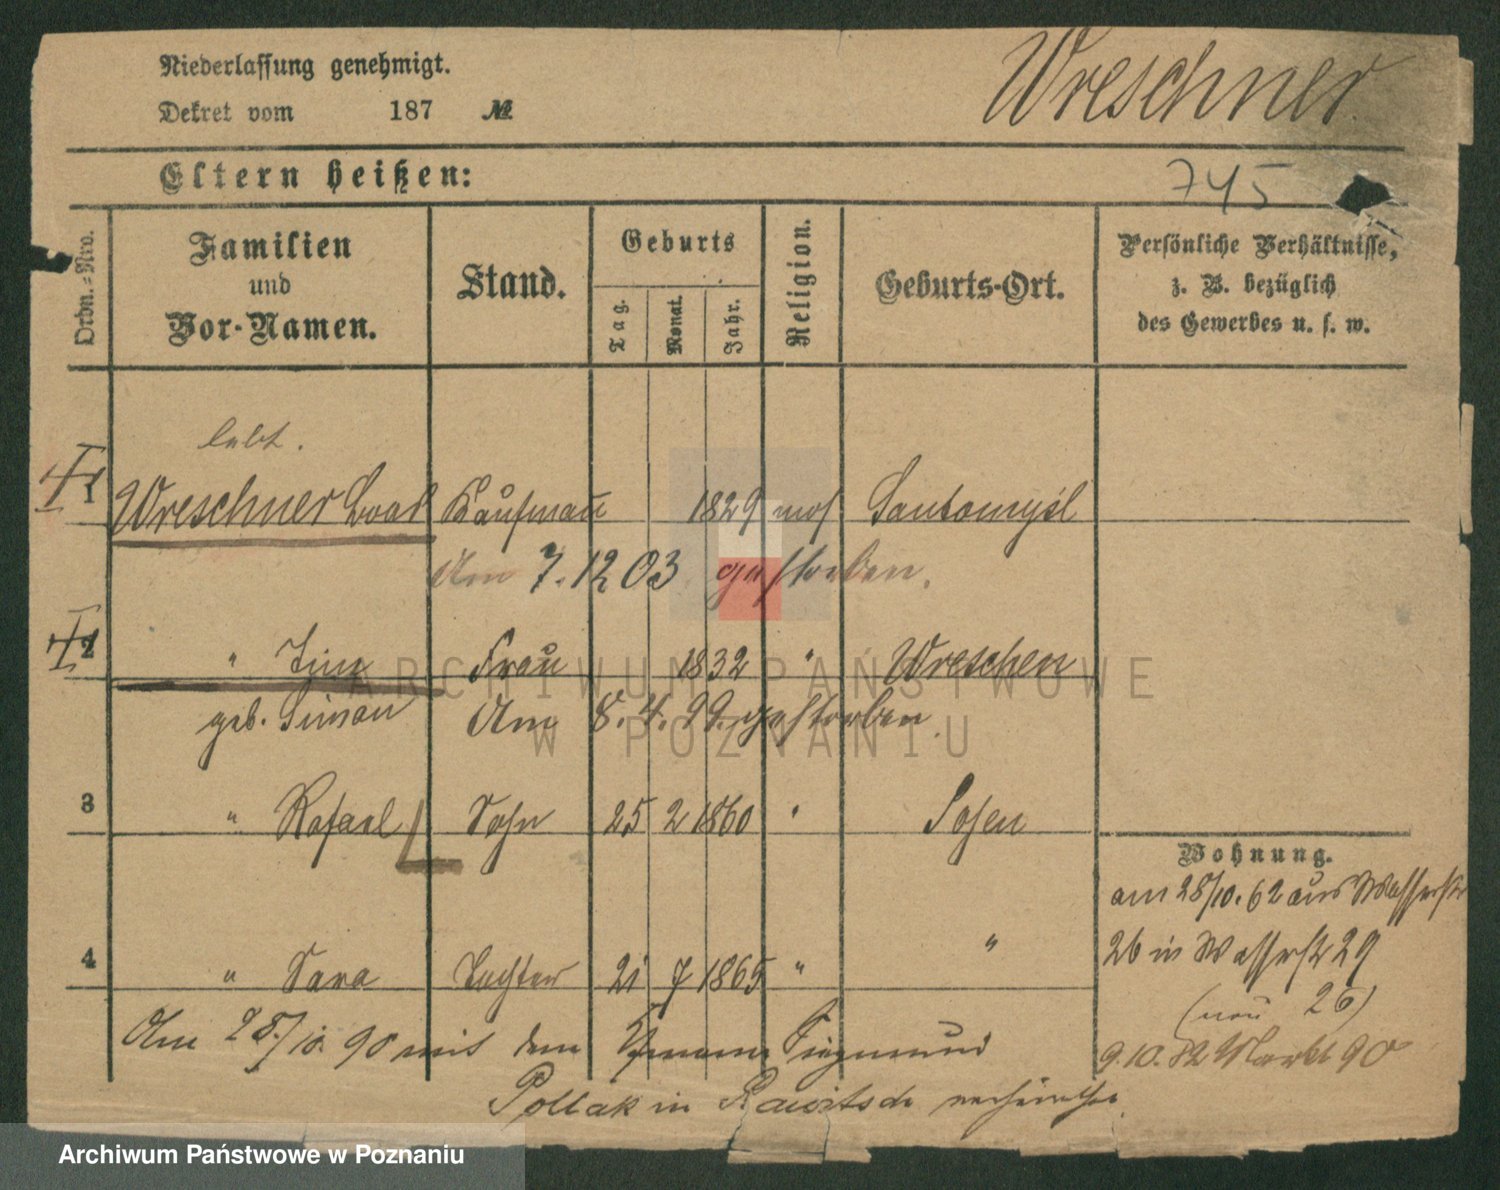 Niederlassung genehmigt.
Wreschner
Dekret vom 187 №
Eltern heißen:
745
Ordn.=Nro.
Familien
und
Vor-Namen.
Stand.
Geburts
Tag.
Monat.
Jahr.
Religion.
Geburts-Ort.
Persönliche Verhältnisse,
z. B. bezüglich
des Gewerbes u. s. w.
lebt.
1 Wreschner Kaufmann 1829 mos Santomyśl
Am 7.12 03 gestorben.
2 " Frau 1832 " Wreschen
geb. Simon Am 8.4.99 gestorben.
3 " Rafael Sohn 25 2 1860 " Posen
Wohnung.
am 28/10.62 aus Wasserstr
26 in Wasserstr 29
(neu 26)
9.10.82 Markt 90
4 " Sara Tochter 21 7 1865 " "
Am 28./10. 90 mit dem
Pollak in Rawitsch verheirathet
ARCHIWUM PAŃSTWOWE
W POZNANIU
Archiwum Państwowe w Poznaniu